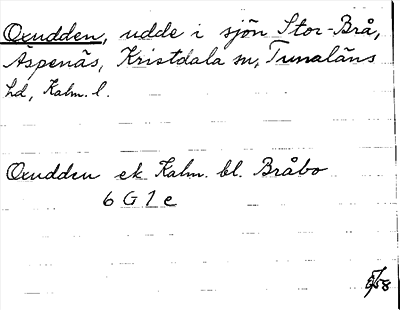 Oxudden, udde i sjön Stor-Brå,
Äspenäs, Kristdala sn, Tunaläns
hd, Kalm. l.
Oxudden ek. Kalm. bl. Bråbo
6 G 1 e